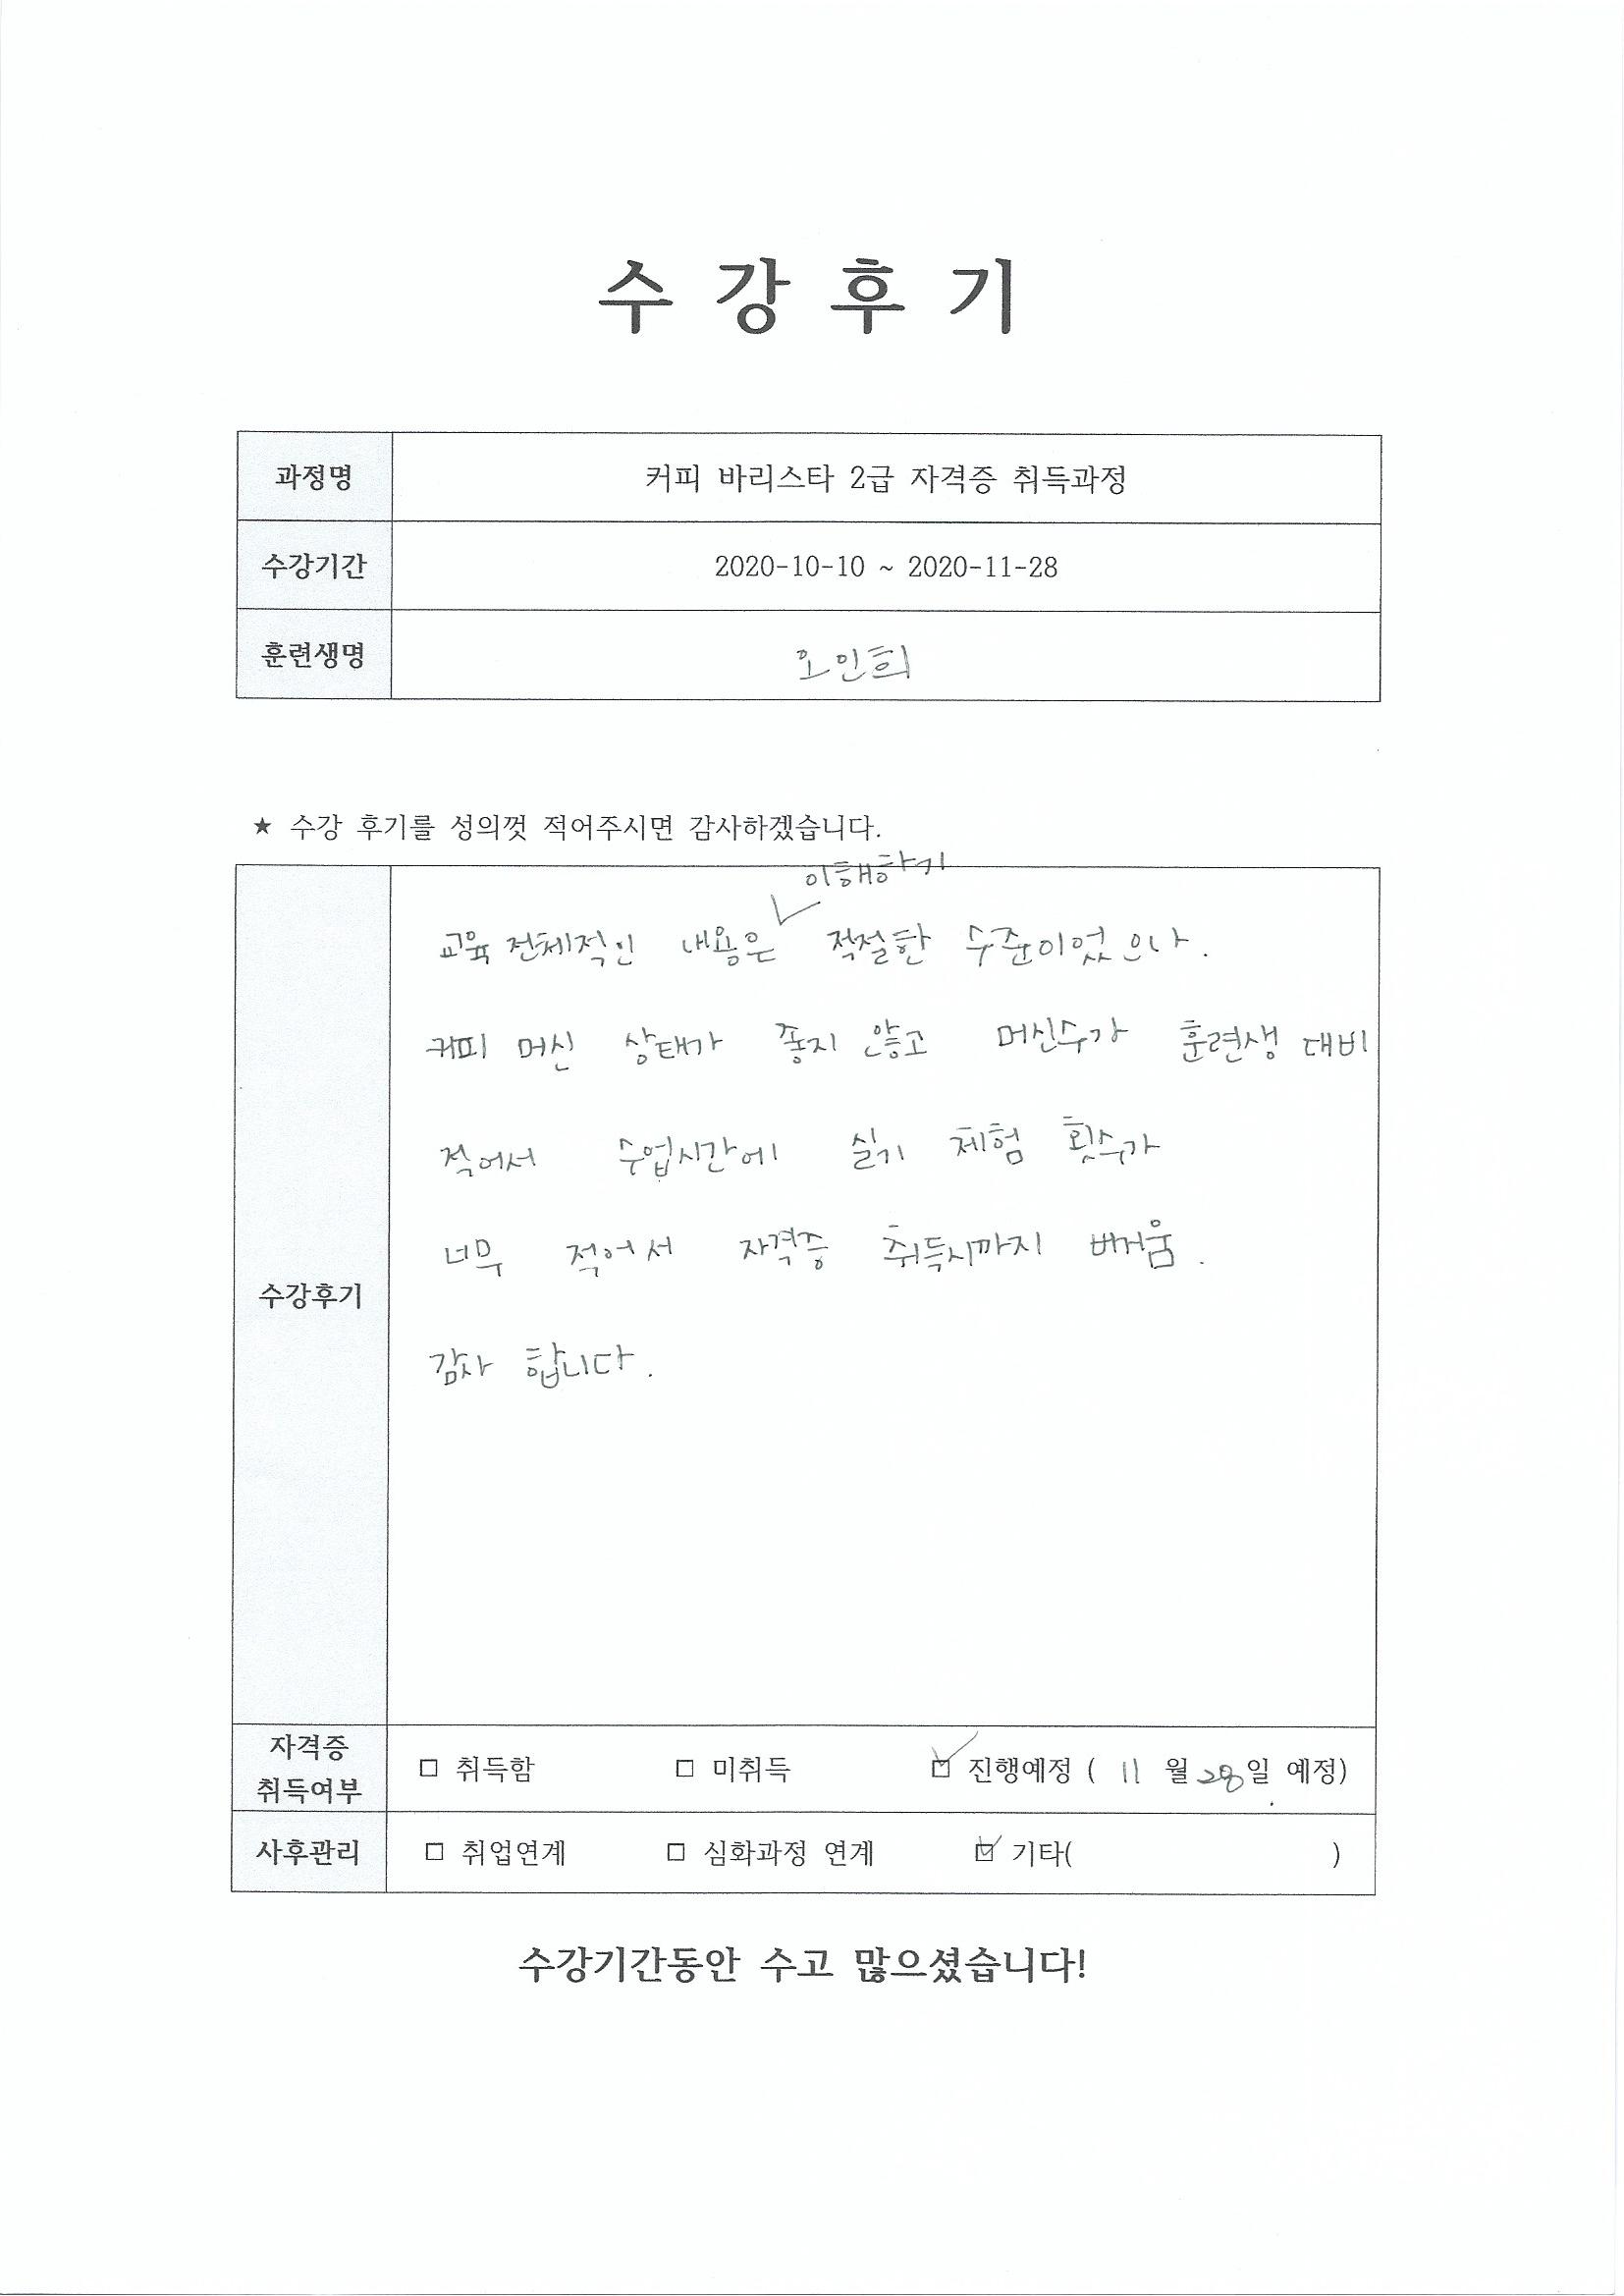 수 강 후 기
과정명 커피 바리스타 2급 자격증 취득과정
수강기간 2020-10-10 ~ 2020-11-28
훈련생명 오인희
★ 수강 후기를 성의껏 적어주시면 감사하겠습니다.
이해하기
교육 전체적인 내용은 적절한 수준이었으나.
커피 머신 상태가 좋지 않고 머신수가 훈련생 대비
적어서 수업시간에 실기 체험 횟수가
너무 적어서 자격증 취득시까지 버거움.
감사 합니다.
수강후기
자격증
취득여부
□ 취득함 □ 미취득 ☑ 진행예정 ( 11 월 28일 예정)
사후관리 □ 취업연계 □ 심화과정 연계 ☑ 기타( )
수강기간동안 수고 많으셨습니다!